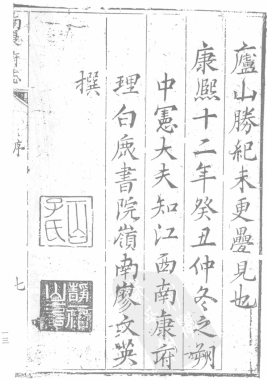 廬山勝紀未更疊見也
康熙十二年癸丑仲冬之朔
中憲大夫知江西南康府
理白鹿書院嶺南廖文英
撰
南康府志
序
七